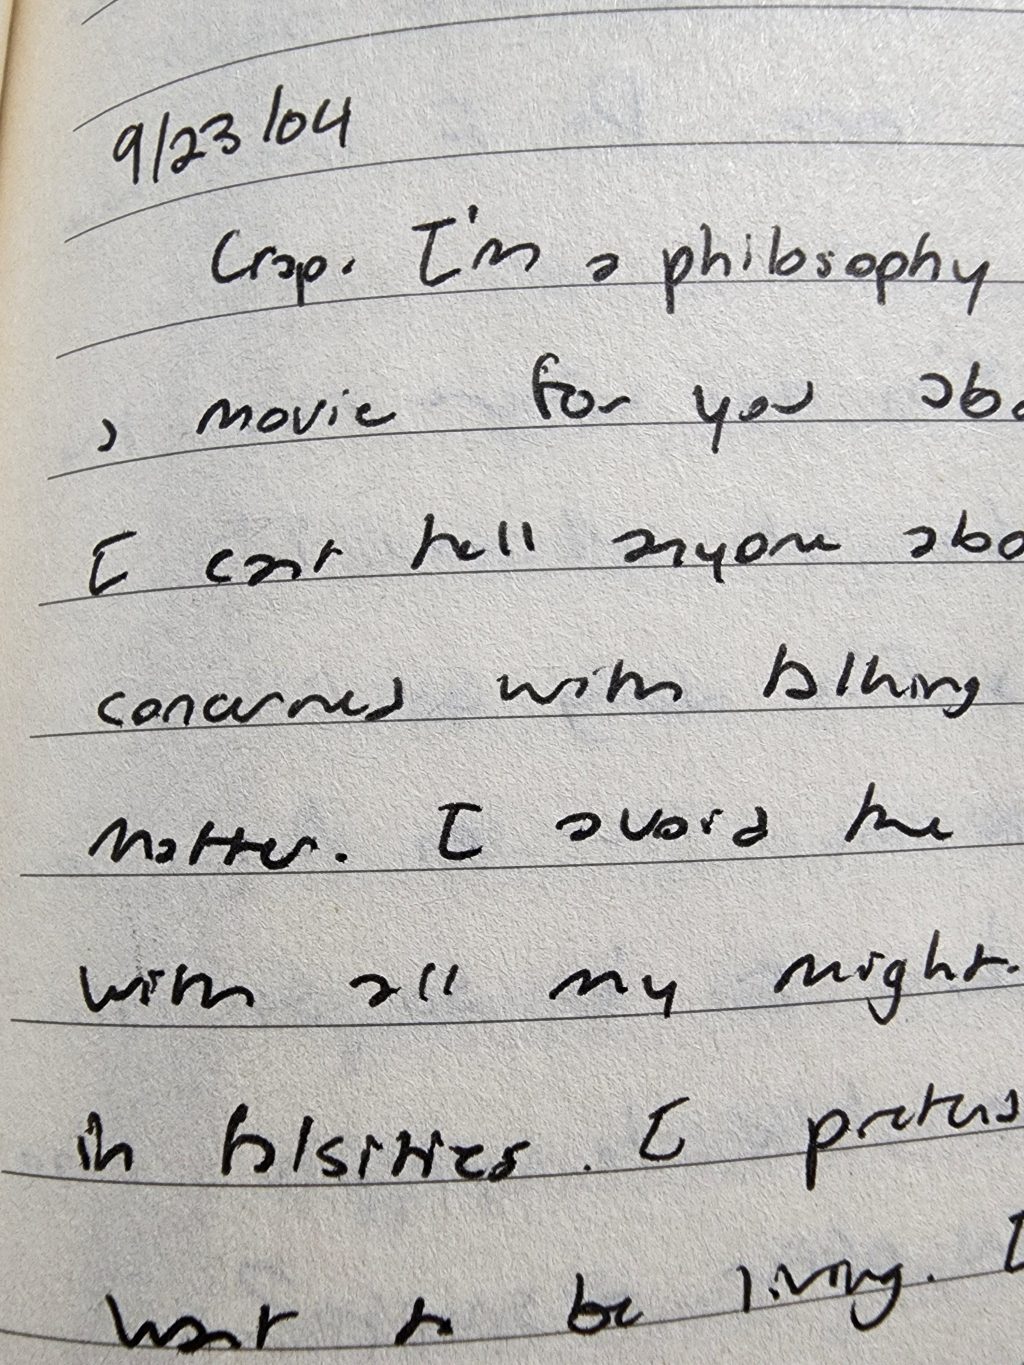 9/23/04
Crap. I'm a philosophy
a movie for you abo
I cant tell anyone abo
concerned with talking
matter. I avoid the
with all my might.
in falsities. I pretend
want to be living. I